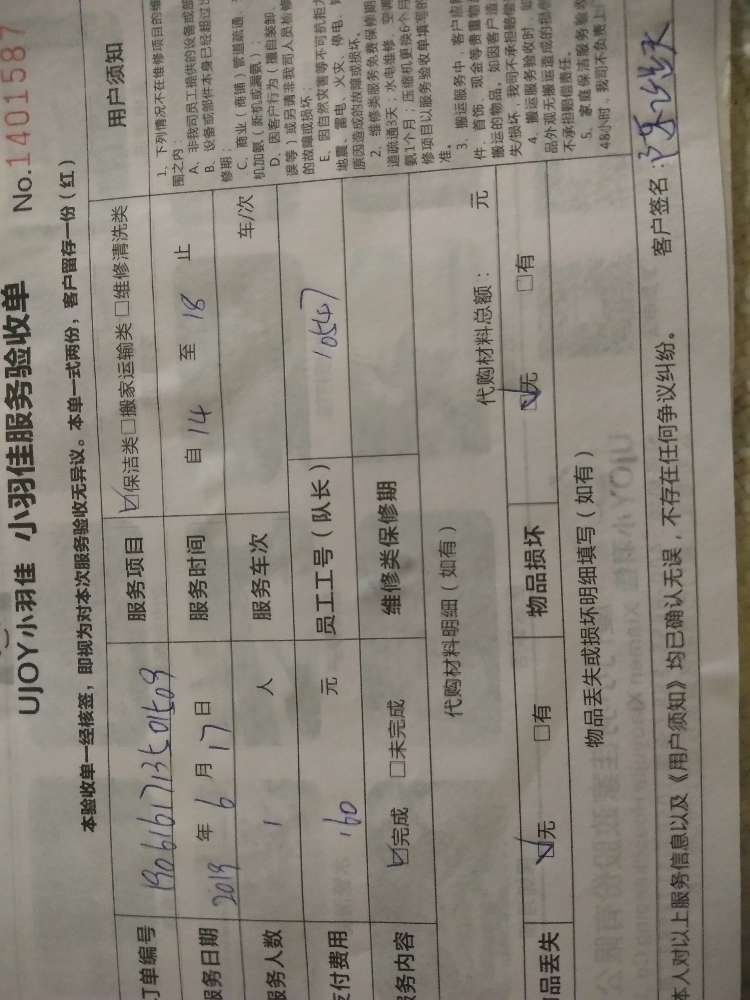 UJOY小羽佳 小羽佳服务验收单 No.1401587
本验收单一经核签，即视为对本次服务验收无异议。本单一式两份，客户留存一份（红）
订单编号 服务项目 ☑保洁类□搬家运输类□维修清洗类
服务日期 2019年6月17日 服务时间 自14至18止
服务人数 1人 服务车次 车/次
支付费用 160元 员工工号（队长） 10547
服务内容 ☑完成 □未完成 维修类保修期
代购材料明细（如有） 代购材料总额： 元
物品丢失 ☑无 □有 物品损坏 ☑无 □有
物品丢失或损坏明细填写（如有）
用户须知
1、下列情况不在维修项目的维
围之内：
A、非我司员工提供的设备或部
B、设备或部件本身已经超过
修期；
C、商业（商铺）管道疏通、
机加氨（新机或漏氨）；
D、因客户行为（擅自装卸、
误等）或另请非我司人员检修
的故障或损坏；
E、因自然灾害等不可抗拒力
地震、雷电、火灾、停电、
原因造成的故障或损坏。
2、维修类服务免费保修期
道疏通3天；水电维修、空调
氨1个月；压缩机更换6个月
修项目以服务验收单填写的
准。
3、搬运服务中，客户应
件、首饰、现金等贵重物品
搬运的物品，如因客户
失/损坏，我司不承担赔偿
4、搬运服务验收时，如
品外观无搬运造成的损
不承担赔偿责任。
5、家庭保洁服务验收
48小时，我司不负责上门
本人对以上服务信息以及《用户须知》均已确认无误，不存在任何争议纠纷。 客户签名：